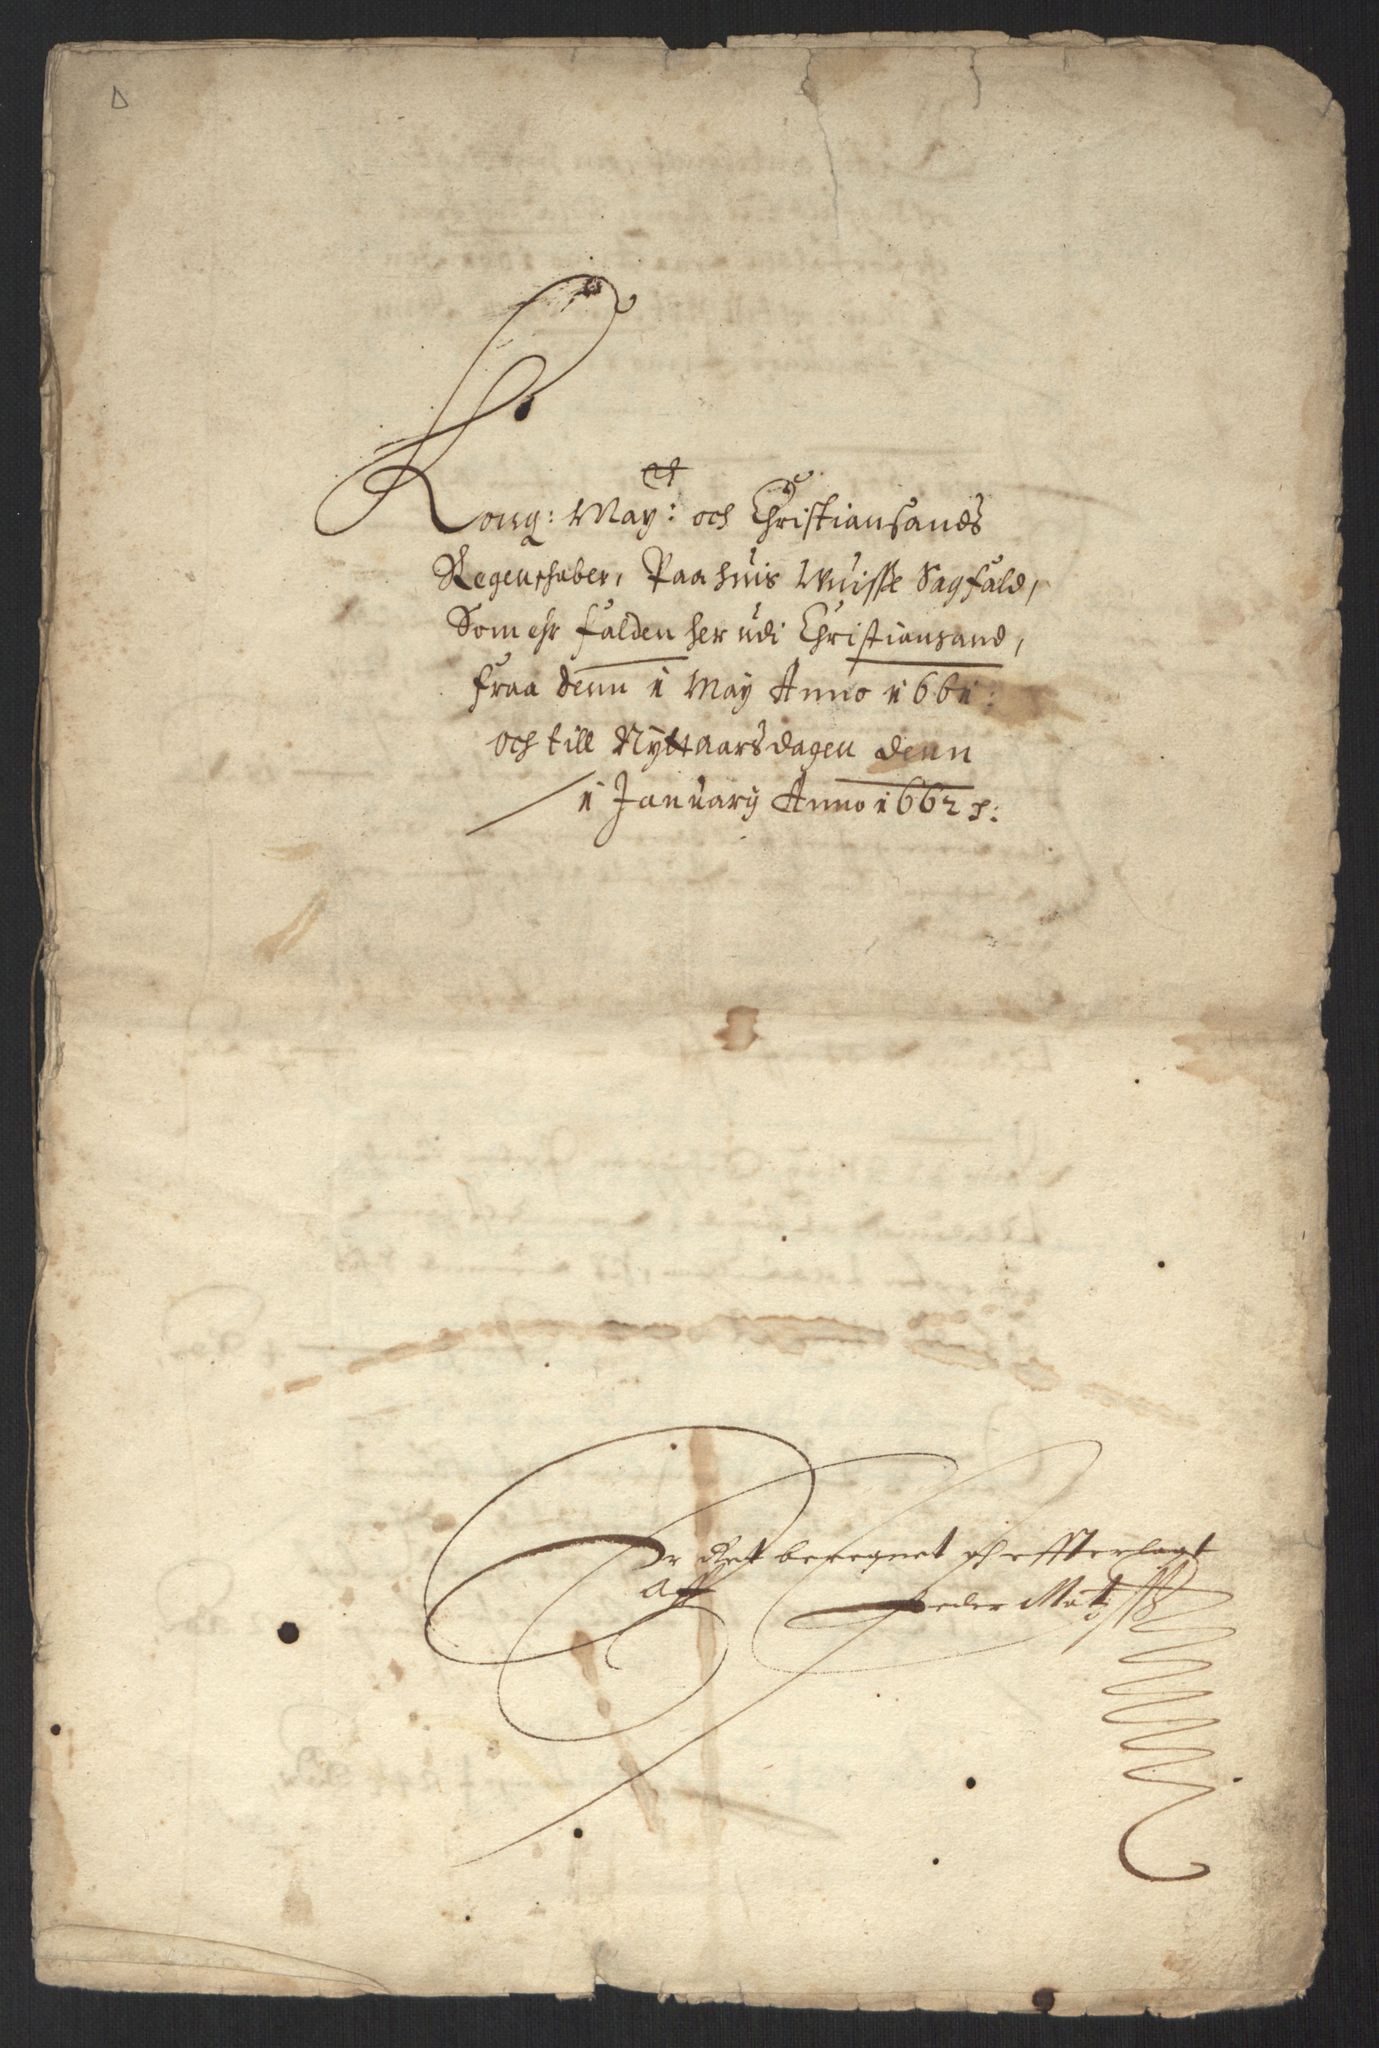 Kong: May:ᵗᵗ och Christiansands
Regenschaber, Paa huis Wuisse Sagfald,
Som ehr falden her udi Christiansand,
fraa denn 1 May Anno 1661:
och till Nyttaarsdagen denn
1 January Anno 1662
Er Ret beregnet och effterlagt
Aff Peder